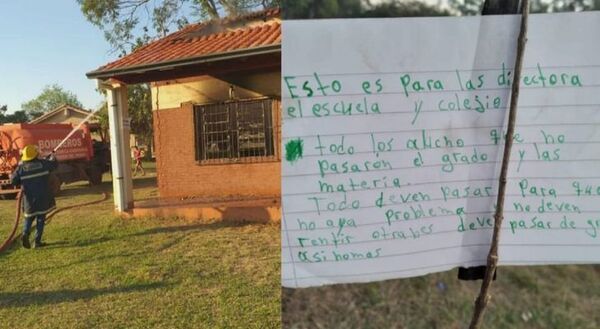 BOMBEROS
Esto es para las directora
el escuela y colegio
todo los alucho que no
pasaron el grado y las
materia.
Todo deven pasar para que
no aya problema no deven
rentir otrabes deven pasar de gra
asi nomas